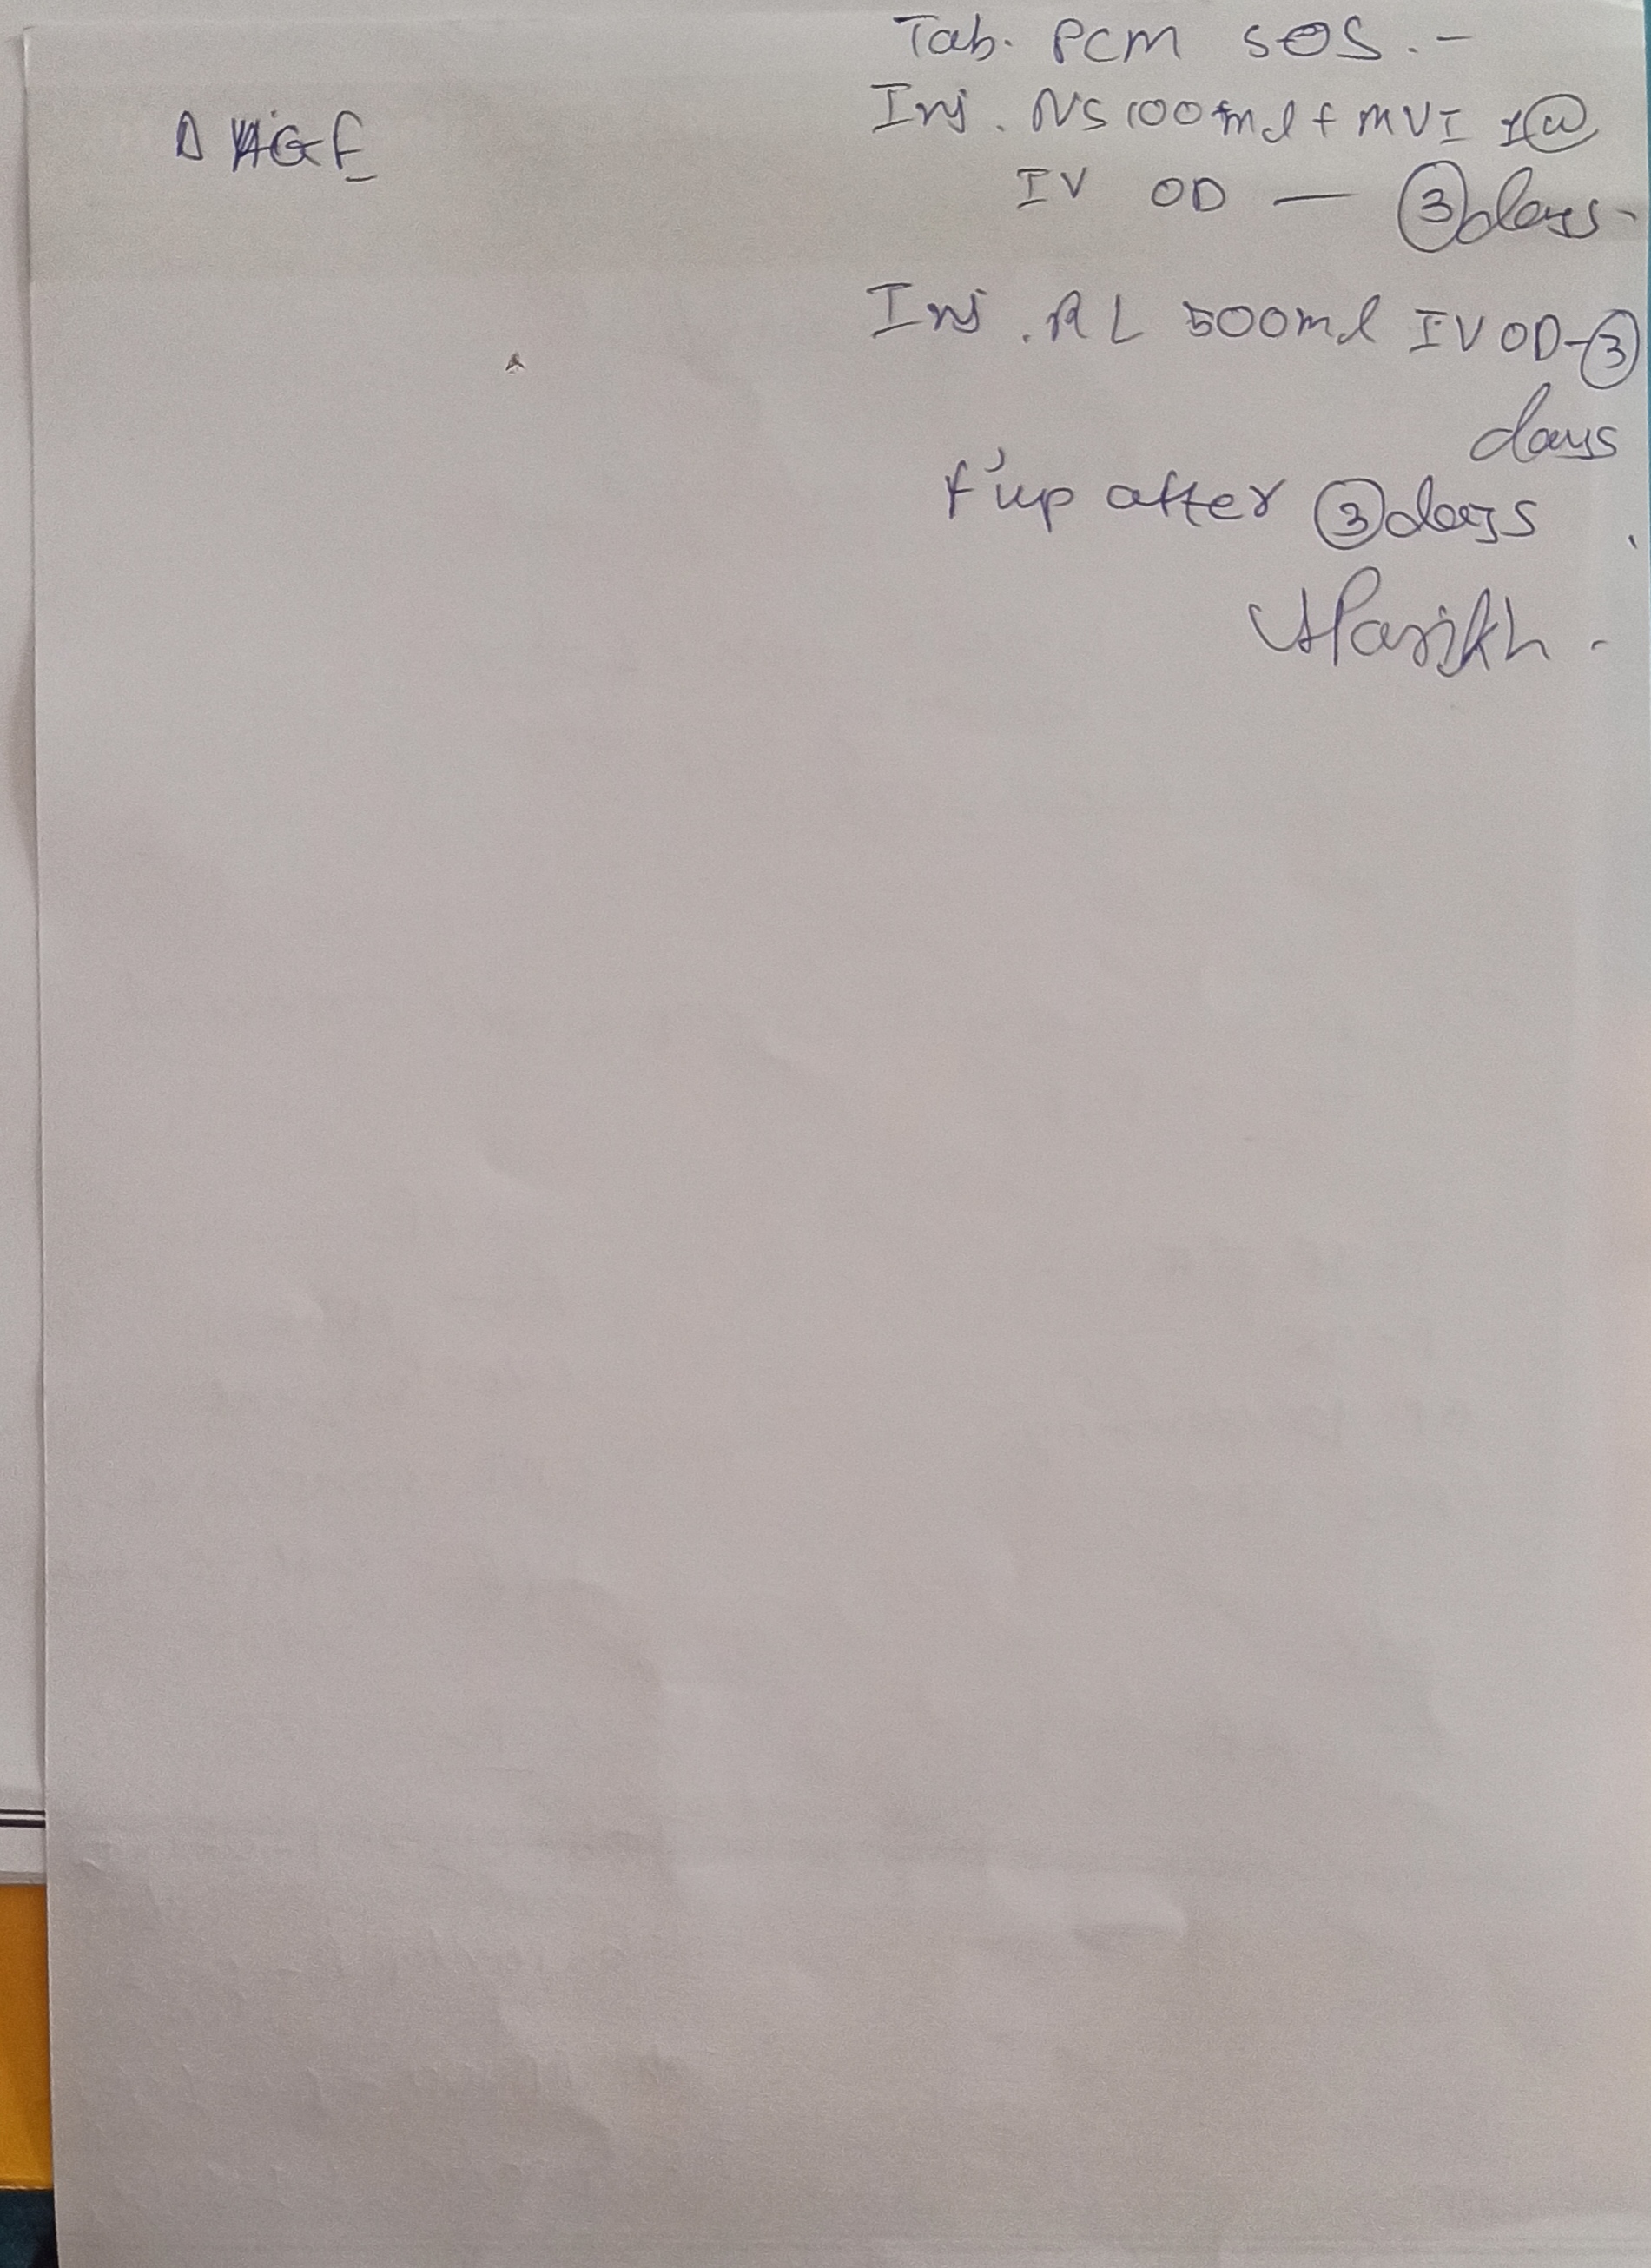 Tab. PCM SOS. -
Inj. NS 100ml + MVI 1
AGE
IV OD — 3 days -
Inj. RL 500ml IV OD - 3
days
f'up after 3 days
Parikh.